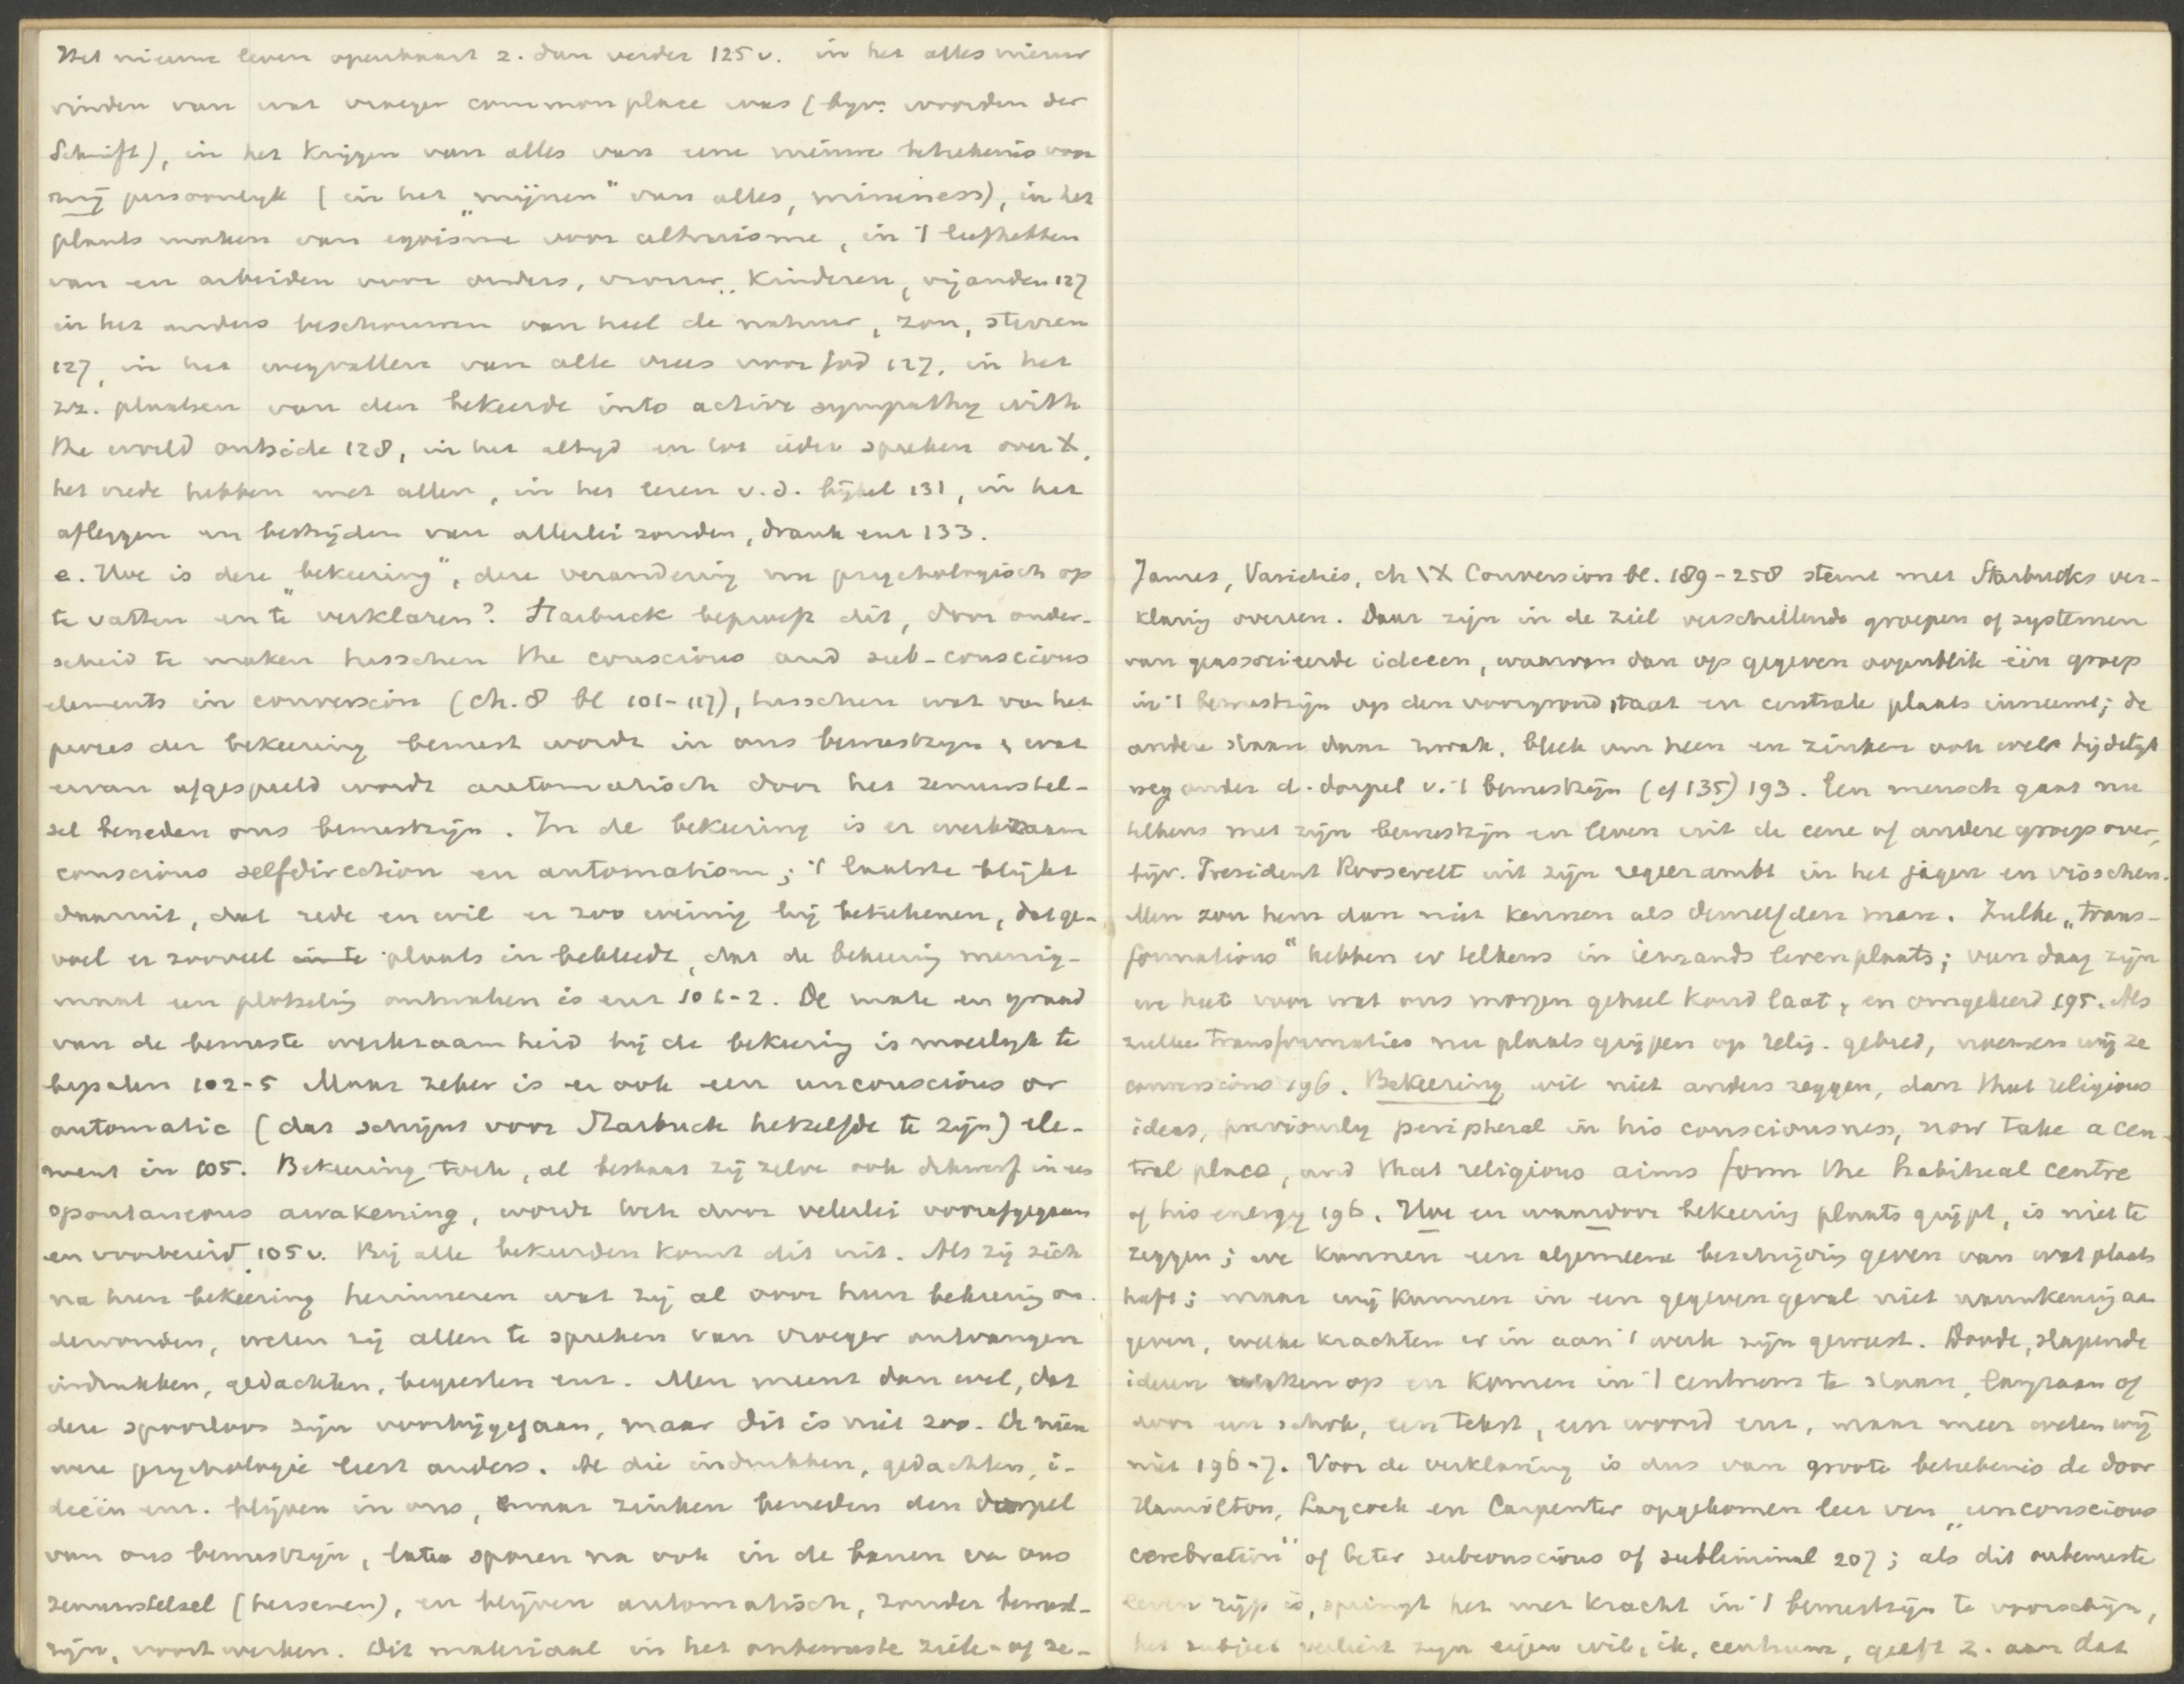 Het nieuwe leven openbaart z. dan verder 125 v. in het alles nieuw
vinden van wat vroeger commonplace was (bijv. woorden der
Schrift), in het krijgen van alles van eene nieuwe beteekenis voor
mij persoonlijk (in het „mijnen" van alles, mineness), in het
plaats maken van egoisme voor altruisme, in 't liefhebben
van en arbeiden voor ouders, vrouw, kinderen, vijanden 127
in het anders beschouwen van heel de natuur, zon, sterren
127, in het wegvallen van alle vrees voor God 127, in het
z.z. plaatsen van den bekeerde into active sympathy with
the world outside 128, in het altijd en tot ieder spreken over X,
het vrede hebben met allen, in het lezen v.d. bijbel 131, in het
afleggen en bestrijden van allerlei zonden, drank enz 133.
e. Hoe is deze „bekeering", deze verandering nu psychologisch op
te vatten en te verklaren? Starbuck beproeft dit, door onder-
scheid te maken tusschen the conscious and sub-conscious
elements in conversion (ch. 8 bl 101-117), tusschen wat van het
proces der bekeering bewust wordt in ons bewustzijn & wat
ervan afgespeeld wordt automatisch door het zenuwstel-
sel beneden ons bewustzijn. In de bekeering is er werkzaam
conscious selfdirection en automatism; 't laatste blijkt
daaruit, dat rede en wil er zoo weinig bij beteekenen, dat ge-
voel er zooveel plaats in bekleedt, dat de bekeering menig-
maal een plotseling ontwaken is enz 101-2. De mate en graad
van de bewuste werkzaamheid bij de bekeering is moeilijk te
bepalen 102-5 Maar zeker is er ook een unconscious or
automatic (dat schijnt voor Starbuck hetzelfde te zijn) ele-
ment in 105. Bekeering toch, al bestaat zij zelve ook dikwerf in een
spontaneous awakening, wordt toch door velerlei voorafgegaan
en voorbereid 105 v. Bij alle bekeerden komt dit uit. Als zij zich
na hun bekeering herinneren wat zij al voor hun bekeering on-
dervonden, weten zij allen te spreken van vroeger ontvangen
indrukken, gedachten, begeerten enz. Men meent dan wel, dat
deze spoorloos zijn voorbijgegaan, maar dit is niet zoo. De nieu
were psychologie leert anders. Al die indrukken, gedachten, i-
deeën enz. blijven in ons, maar zinken beneden den dorpel
van ons bewustzijn, laten sporen na ook in de banen van ons
zenuwstelsel (hersenen), en blijven automatisch, zonder bewust-
zijn, voort werken. Dit materiaal in het onbewuste ziele- of ze-
James, Varieties, ch IX Conversion bl. 189-258 stemt met Starbucks ver-
klaring overeen. Daar zijn in de ziel verschillende groepen of systemen
van geassocieerde ideeen, waarvan dan op gegeven oogenblik één groep
in 't bewustzijn op den voorgrond staat en centrale plaats inneemt; de
andere staan daar zwak, bleek om heen en zinken ook wel tijdelijk
weg onder d. dorpel v. 't bewustzijn (cf 135) 193. Een mensch gaat nu
telkens met zijn bewustzijn en leven uit de eene of andere groep over,
bijv. President Roosevelt uit zijn regeerambt in het jagen en visschen.
Men zou hem dan niet kennen als denzelfden man. Zulke „trans-
formations" hebben er telkens in iemands leven plaats; van daag zijn
we heet voor wat ons morgen geheel koud laat, en omgekeerd 195. Als
zulke transformaties nu plaats grijpen op relig. gebied, noemen wij ze
conversions 196. Bekeering wil niet anders zeggen, dan that religious
ideas, previously peripheral in his consciousness, now take a cen-
tral place, and that religious aims form the habitual centre
of his energy 196. Hoe en waardoor bekeering plaats grijpt, is niet te
zeggen; we kunnen een algemeene beschrijving geven van wat plaats
heeft; maar wij kunnen in een gegeven geval niet nauwkeurig aan
geven, welke krachten er in aan 't werk zijn geweest. Doode, slapende
ideeen waken op en komen in 't centrum te staan, langzaam of
door een schok, een tekst, een woord enz, maar meer weten wij
niet 196-7. Voor de verklaring is dus van groote beteekenis de door
Hamilton, Laycock en Carpenter opgekomen leer van „unconscious
cerebration" of beter subconscious of subliminal 207; als dit onbewuste
leven rijp is, springt het met kracht in 't bewustzijn te voorschijn,
het subject verliest zijn eigen wil, ik, centrum, geeft z. aan dat